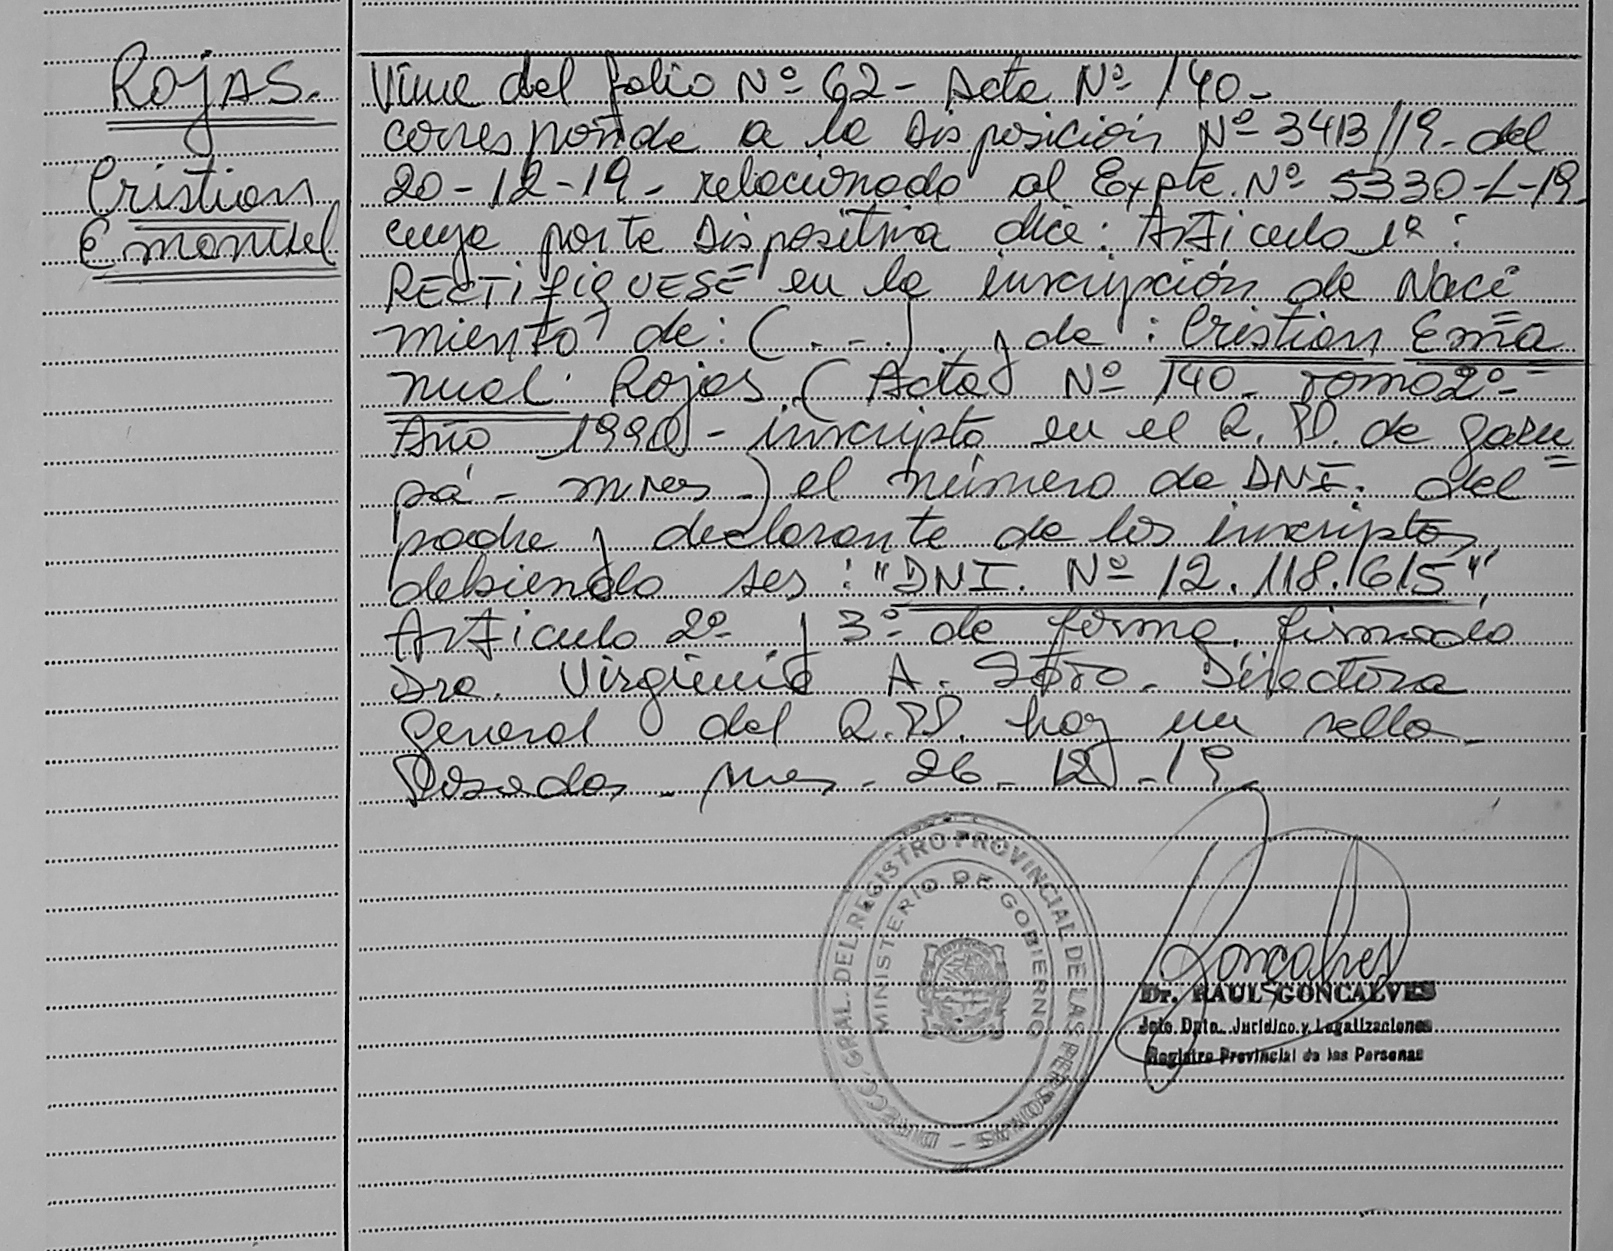 Rojas.
Cristian
Emanuel
Viene del folio Nº 62 - Acta Nº 140 -
corresponde a la Disposición Nº 3413/19 - del
20-12-19 - relacionado al Expte. Nº 5330-L-19
cuya parte Dispositiva dice: Articulo 1º:
RECTIFIQUESE en la inscripción de Naci
miento de: (...) y de: Cristian Ema
nuel Rojas (Acta Nº 140 - Tomo 2º -
Año 1990 - inscripto en el R.P. de Garu
pá - mnes -) el número de DNI. del
padre y declarante de los inscriptos,
debiendo ser: "DNI. Nº 12.118.615",
Articulo 2º y 3º de forma. firmado
Dra. Virginia A. Directora
General del R.P. hay un sello -
Posadas - mnes - 26-12-19
DIRECC. GRAL. DEL REGISTRO PROVINCIAL DE LAS PERSONAS -
MINISTERIO DE GOBIERNO
Goncalves
Dr. RAUL GONCALVES
Jefe Dpto. Jurídico y Legalizaciones
Registro Provincial de las Personas